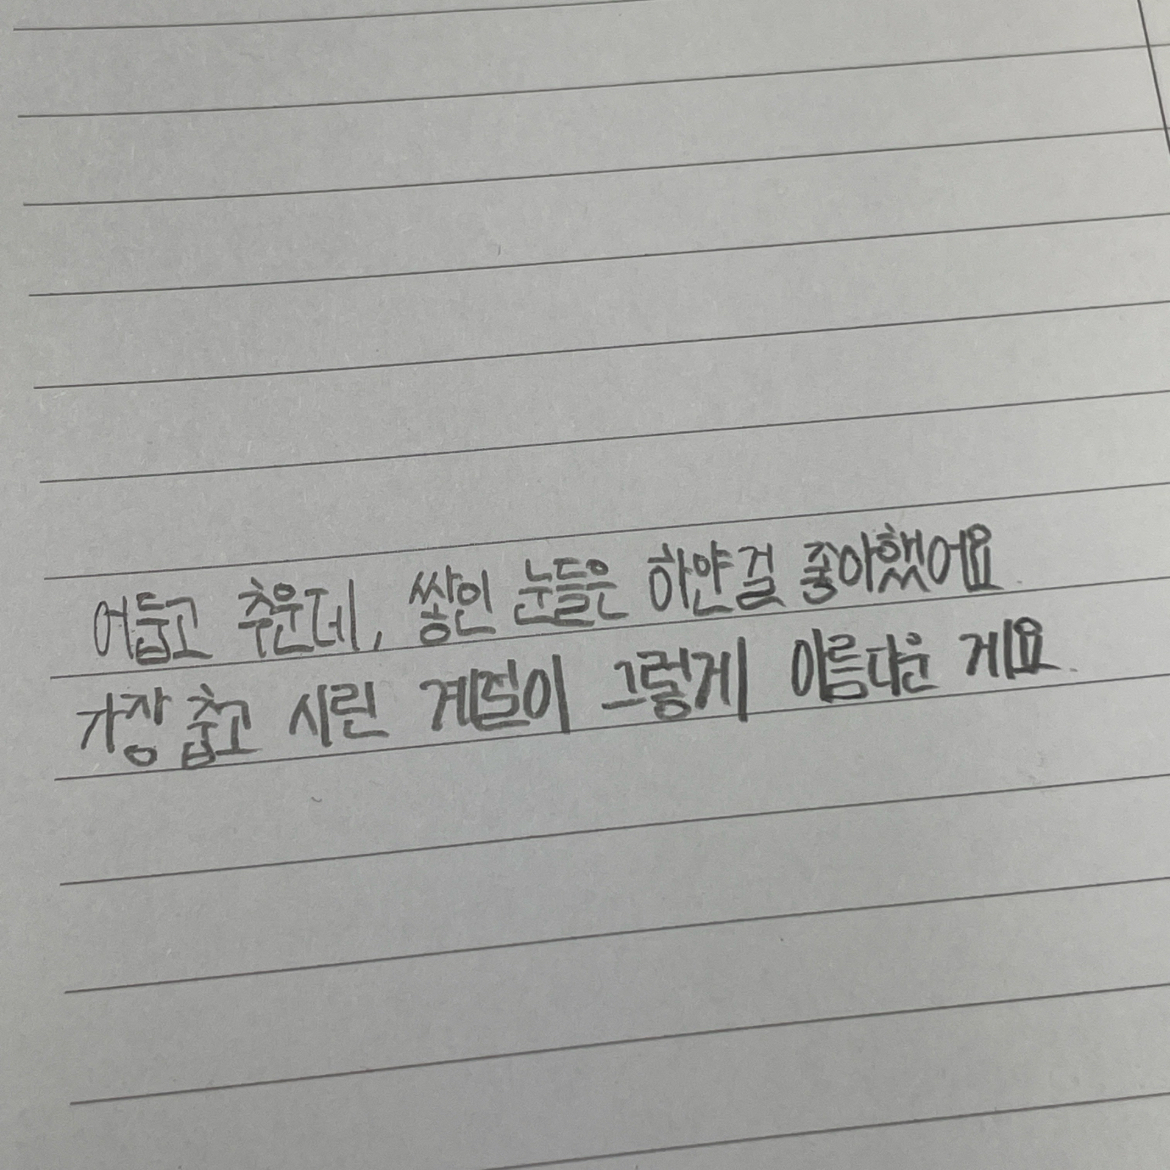 어둡고 추운데, 쌓인 눈들은 하얀걸 좋아했어요.
가장 춥고 시린 계절이 그렇게 아름다운 게요.